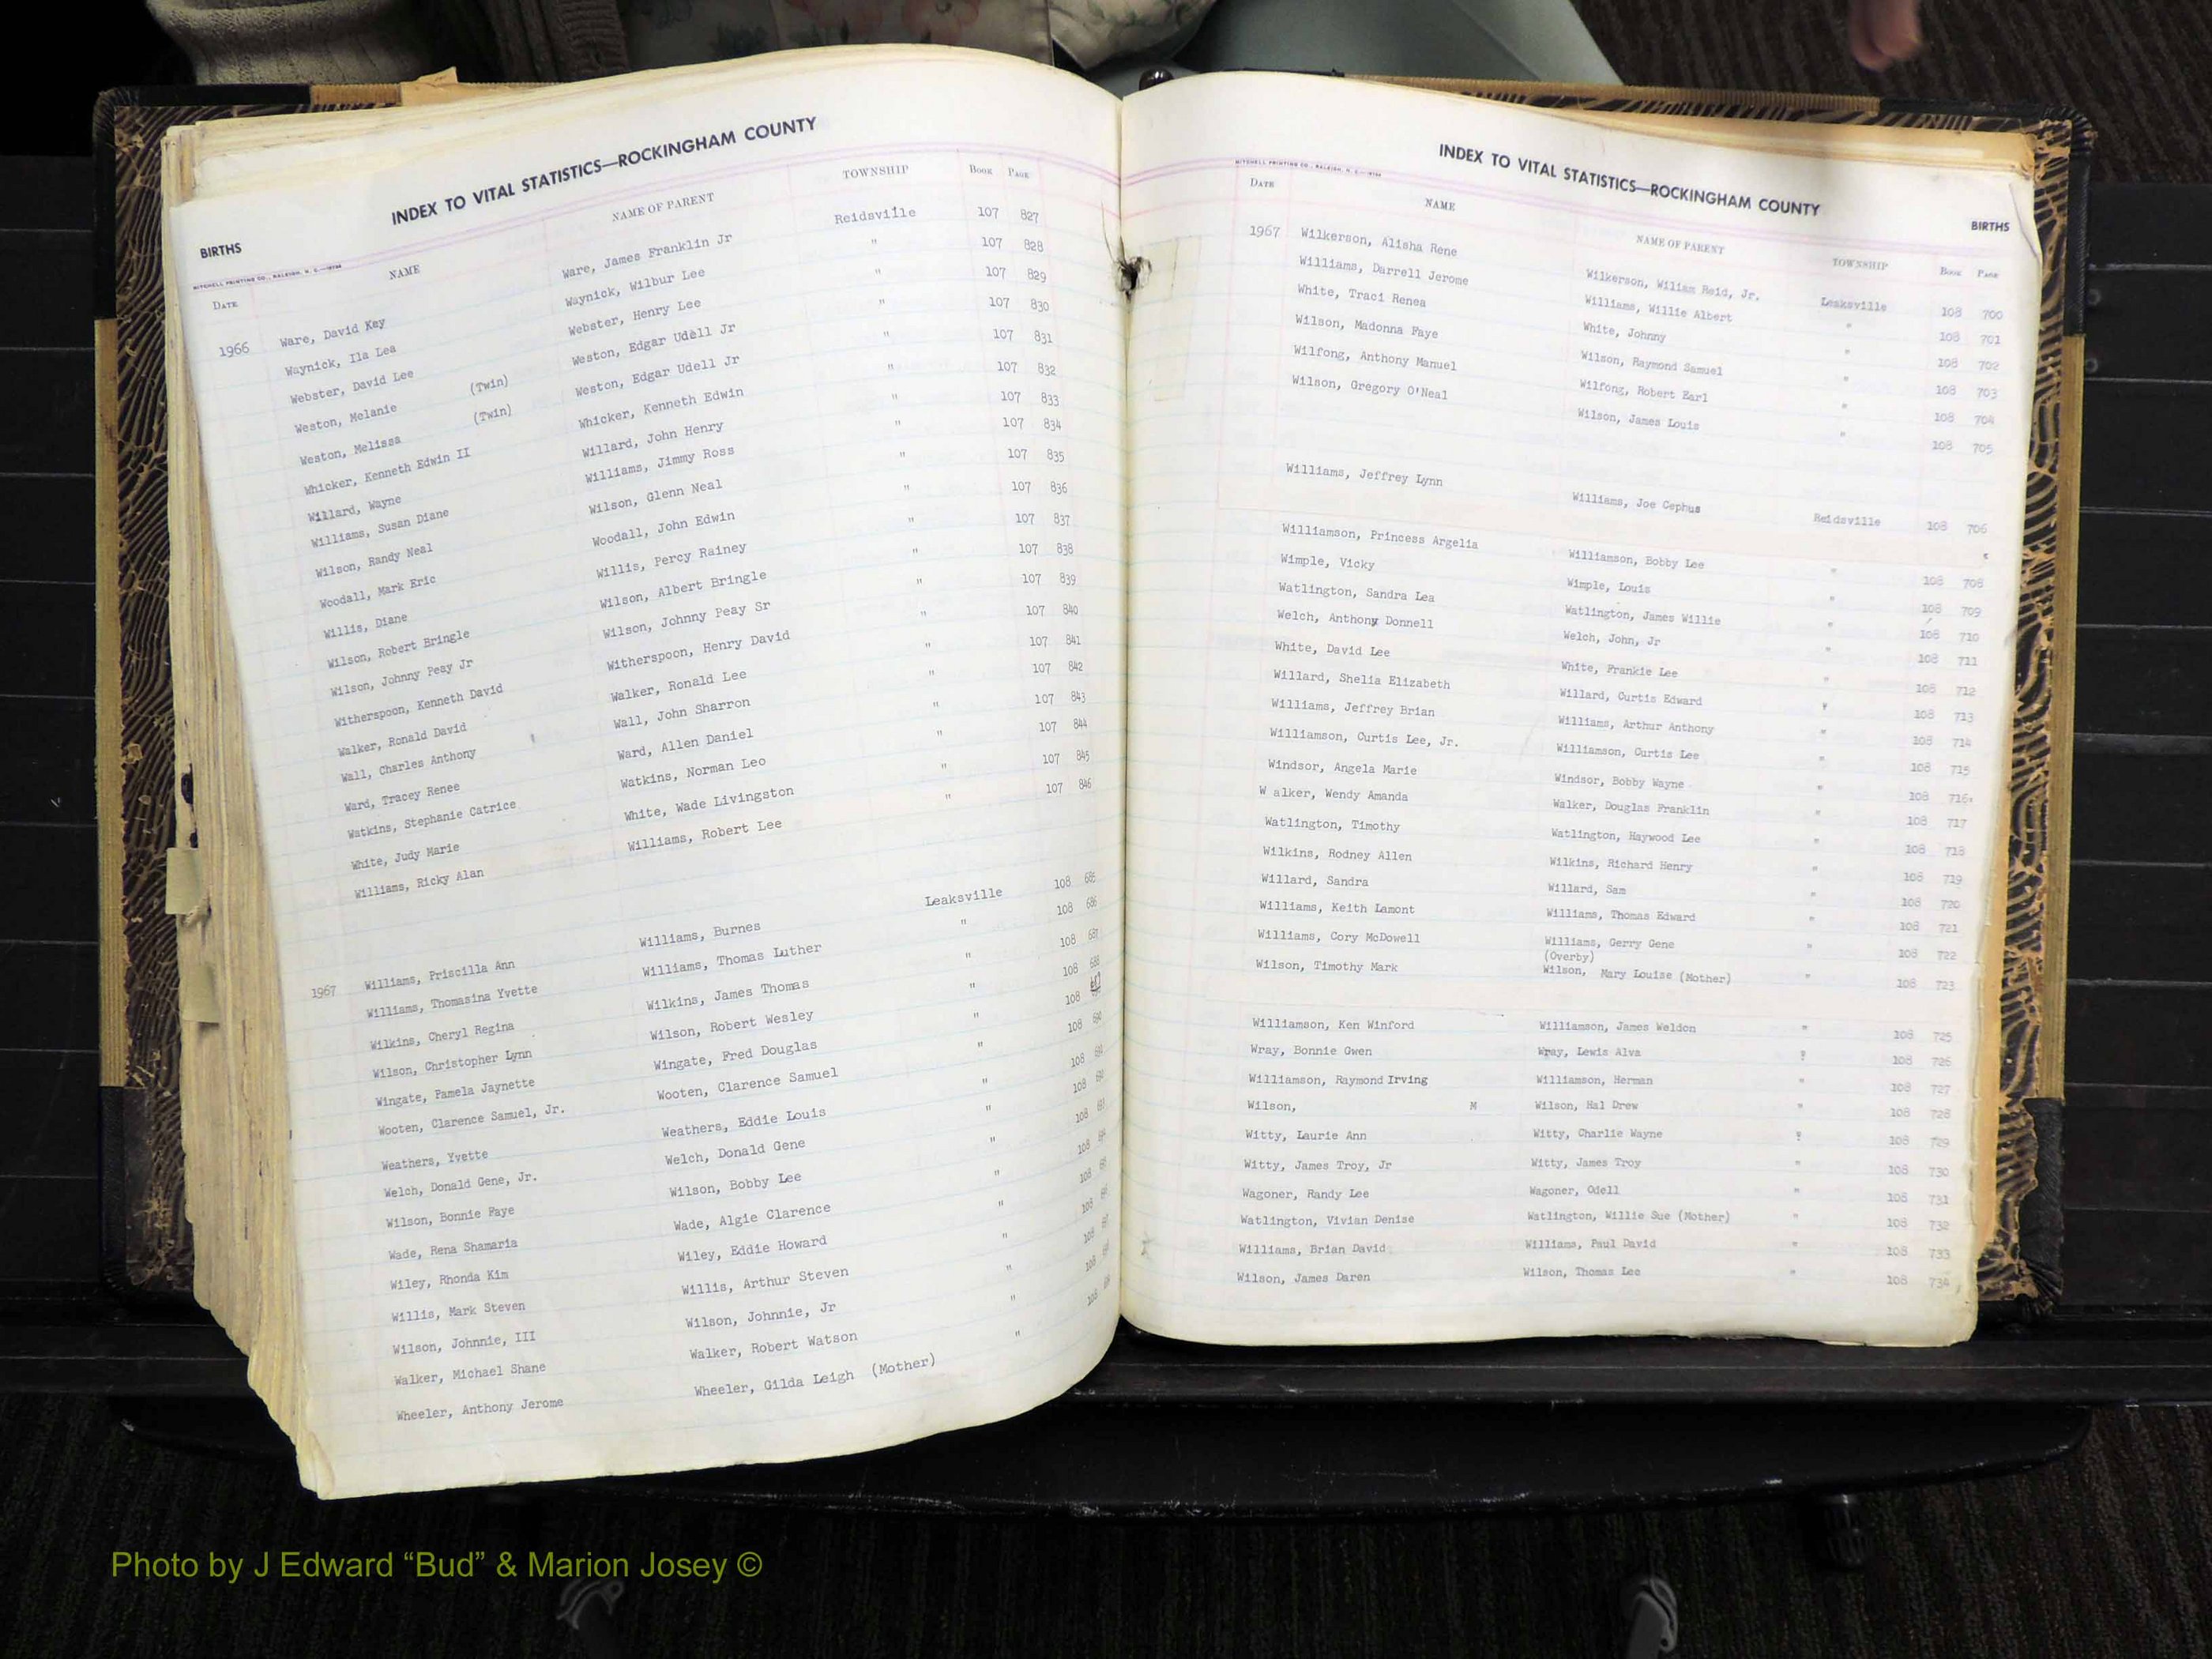 INDEX TO VITAL STATISTICS—ROCKINGHAM COUNTY
BIRTHS
MITCHELL PRINTING CO., RALEIGH, N. C.
DATE NAME NAME OF PARENT TOWNSHIP BOOK PAGE
1966 Ware, David Key Ware, James Franklin Jr Reidsville 107 827
Waynick, Ila Lea Waynick, Wilbur Lee " 107 828
Webster, David Lee Webster, Henry Lee " 107 829
Weston, Melanie (Twin) Weston, Edgar Udell Jr " 107 830
Weston, Melissa (Twin) Weston, Edgar Udell Jr " 107 831
Whicker, Kenneth Edwin II Whicker, Kenneth Edwin " 107 832
Willard, Wayne Willard, John Henry " 107 833
Williams, Susan Diane Williams, Jimmy Ross " 107 834
Wilson, Randy Neal Wilson, Glenn Neal " 107 835
Woodall, Mark Eric Woodall, John Edwin " 107 836
Willis, Diane Willis, Percy Rainey " 107 837
Wilson, Robert Bringle Wilson, Albert Bringle " 107 838
Wilson, Johnny Peay Jr Wilson, Johnny Peay Sr " 107 839
Witherspoon, Kenneth David Witherspoon, Henry David " 107 840
Walker, Ronald David Walker, Ronald Lee " 107 841
Wall, Charles Anthony Wall, John Sharron " 107 842
Ward, Tracey Renee Ward, Allen Daniel " 107 843
Watkins, Stephanie Catrice Watkins, Norman Leo " 107 844
White, Judy Marie White, Wade Livingston " 107 845
Williams, Ricky Alan Williams, Robert Lee " 107 846
1967 Williams, Priscilla Ann Williams, Burnes Leaksville 108 685
Williams, Thomasina Yvette Williams, Thomas Luther " 108 686
Wilkins, Cheryl Regina Wilkins, James Thomas " 108 687
Wilson, Christopher Lynn Wilson, Robert Wesley " 108 688
Wingate, Pamela Jaynette Wingate, Fred Douglas " 108
Wooten, Clarence Samuel, Jr. Wooten, Clarence Samuel " 108 690
Weathers, Yvette Weathers, Eddie Louis " 108
Welch, Donald Gene, Jr. Welch, Donald Gene " 108
Wilson, Bonnie Faye Wilson, Bobby Lee " 108
Wade, Rena Shamaria Wade, Algie Clarence " 108
Wiley, Rhonda Kim Wiley, Eddie Howard " 108
Willis, Mark Steven Willis, Arthur Steven " 108
Wilson, Johnnie, III Wilson, Johnnie, Jr " 108
Walker, Michael Shane Walker, Robert Watson " 108
Wheeler, Anthony Jerome Wheeler, Gilda Leigh (Mother) " 108
INDEX TO VITAL STATISTICS—ROCKINGHAM COUNTY
BIRTHS
MITCHELL PRINTING CO., RALEIGH, N. C.
DATE NAME NAME OF PARENT TOWNSHIP BOOK PAGE
1967 Wilkerson, Alisha Rene Wilkerson, Wiliam Reid, Jr. Leaksville 108 700
Williams, Darrell Jerome Williams, Willie Albert " 108 701
White, Traci Renea White, Johnny " 108 702
Wilson, Madonna Faye Wilson, Raymond Samuel " 108 703
Wilfong, Anthony Manuel Wilfong, Robert Earl " 108 704
Wilson, Gregory O'Neal Wilson, James Louis " 108 705
Williams, Jeffrey Lynn Williams, Joe Cephus Reidsville 108 706
Williamson, Princess Argelia Williamson, Bobby Lee " 108 708
Wimple, Vicky Wimple, Louis " 108 709
Watlington, Sandra Lea Watlington, James Willie " 108 710
Welch, Anthony Donnell Welch, John, Jr " 108 711
White, David Lee White, Frankie Lee " 108 712
Willard, Shelia Elizabeth Willard, Curtis Edward " 108 713
Williams, Jeffrey Brian Williams, Arthur Anthony " 108 714
Williamson, Curtis Lee, Jr. Williamson, Curtis Lee " 108 715
Windsor, Angela Marie Windsor, Bobby Wayne " 108 716
W alker, Wendy Amanda Walker, Douglas Franklin " 108 717
Watlington, Timothy Watlington, Haywood Lee " 108 718
Wilkins, Rodney Allen Wilkins, Richard Henry " 108 719
Willard, Sandra Willard, Sam " 108 720
Williams, Keith Lamont Williams, Thomas Edward " 108 721
Williams, Cory McDowell Williams, Gerry Gene " 108 722
(Overby)
Wilson, Timothy Mark Wilson, Mary Louise (Mother) " 108 723
Williamson, Ken Winford Williamson, James Weldon " 108 725
Wray, Bonnie Gwen Wray, Lewis Alva " 108 726
Williamson, Raymond Irving Williamson, Herman " 108 727
Wilson, M Wilson, Hal Drew " 108 728
Witty, Laurie Ann Witty, Charlie Wayne " 108 729
Witty, James Troy, Jr Witty, James Troy " 108 730
Wagoner, Randy Lee Wagoner, Odell " 108 731
Watlington, Vivian Denise Watlington, Willie Sue (Mother) " 108 732
Williams, Brian David Williams, Paul David " 108 733
Wilson, James Daren Wilson, Thomas Lee " 108 734
Photo by J Edward “Bud” & Marion Josey ©